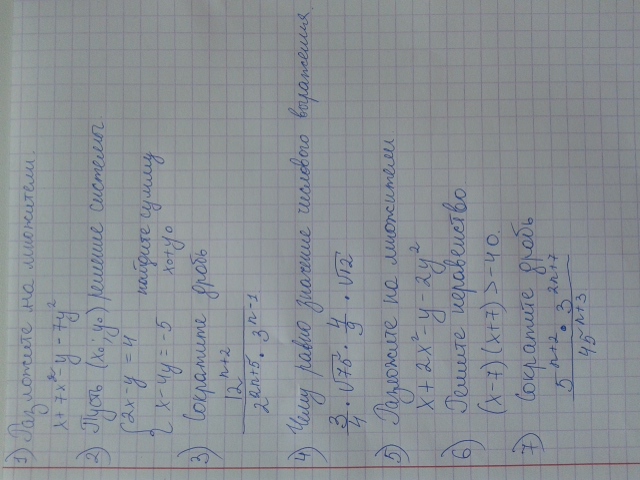 1) Разложите на множители.
x + 7x² - y - 7y²
2) Пусть (x₀; y₀) решение системы.
{2x - y = 4
x - 4y = -5 найдите сумму
x₀ + y₀
3) Сократите дробь
12^(n+2)
2^(2n+5) · 3^(n-1)
4) Чему равно значение числового выражения.
3/4 · √75 · 4/9 · √12
5) Разложите на множители
x + 2x² - y - 2y²
6) Решите неравенство
(x-7)(x+7) > -40.
7) Сократите дробь
5^(n+2) · 3^(2n+7)
45^(n+3)